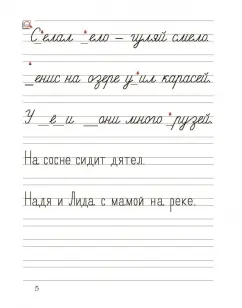 С_елал _ело – гуляй смело.
_енис на озере у_ил карасей.
У _е_и __они много _рузей.
На сосне сидит дятел.
Надя и Лида с мамой на реке.
5